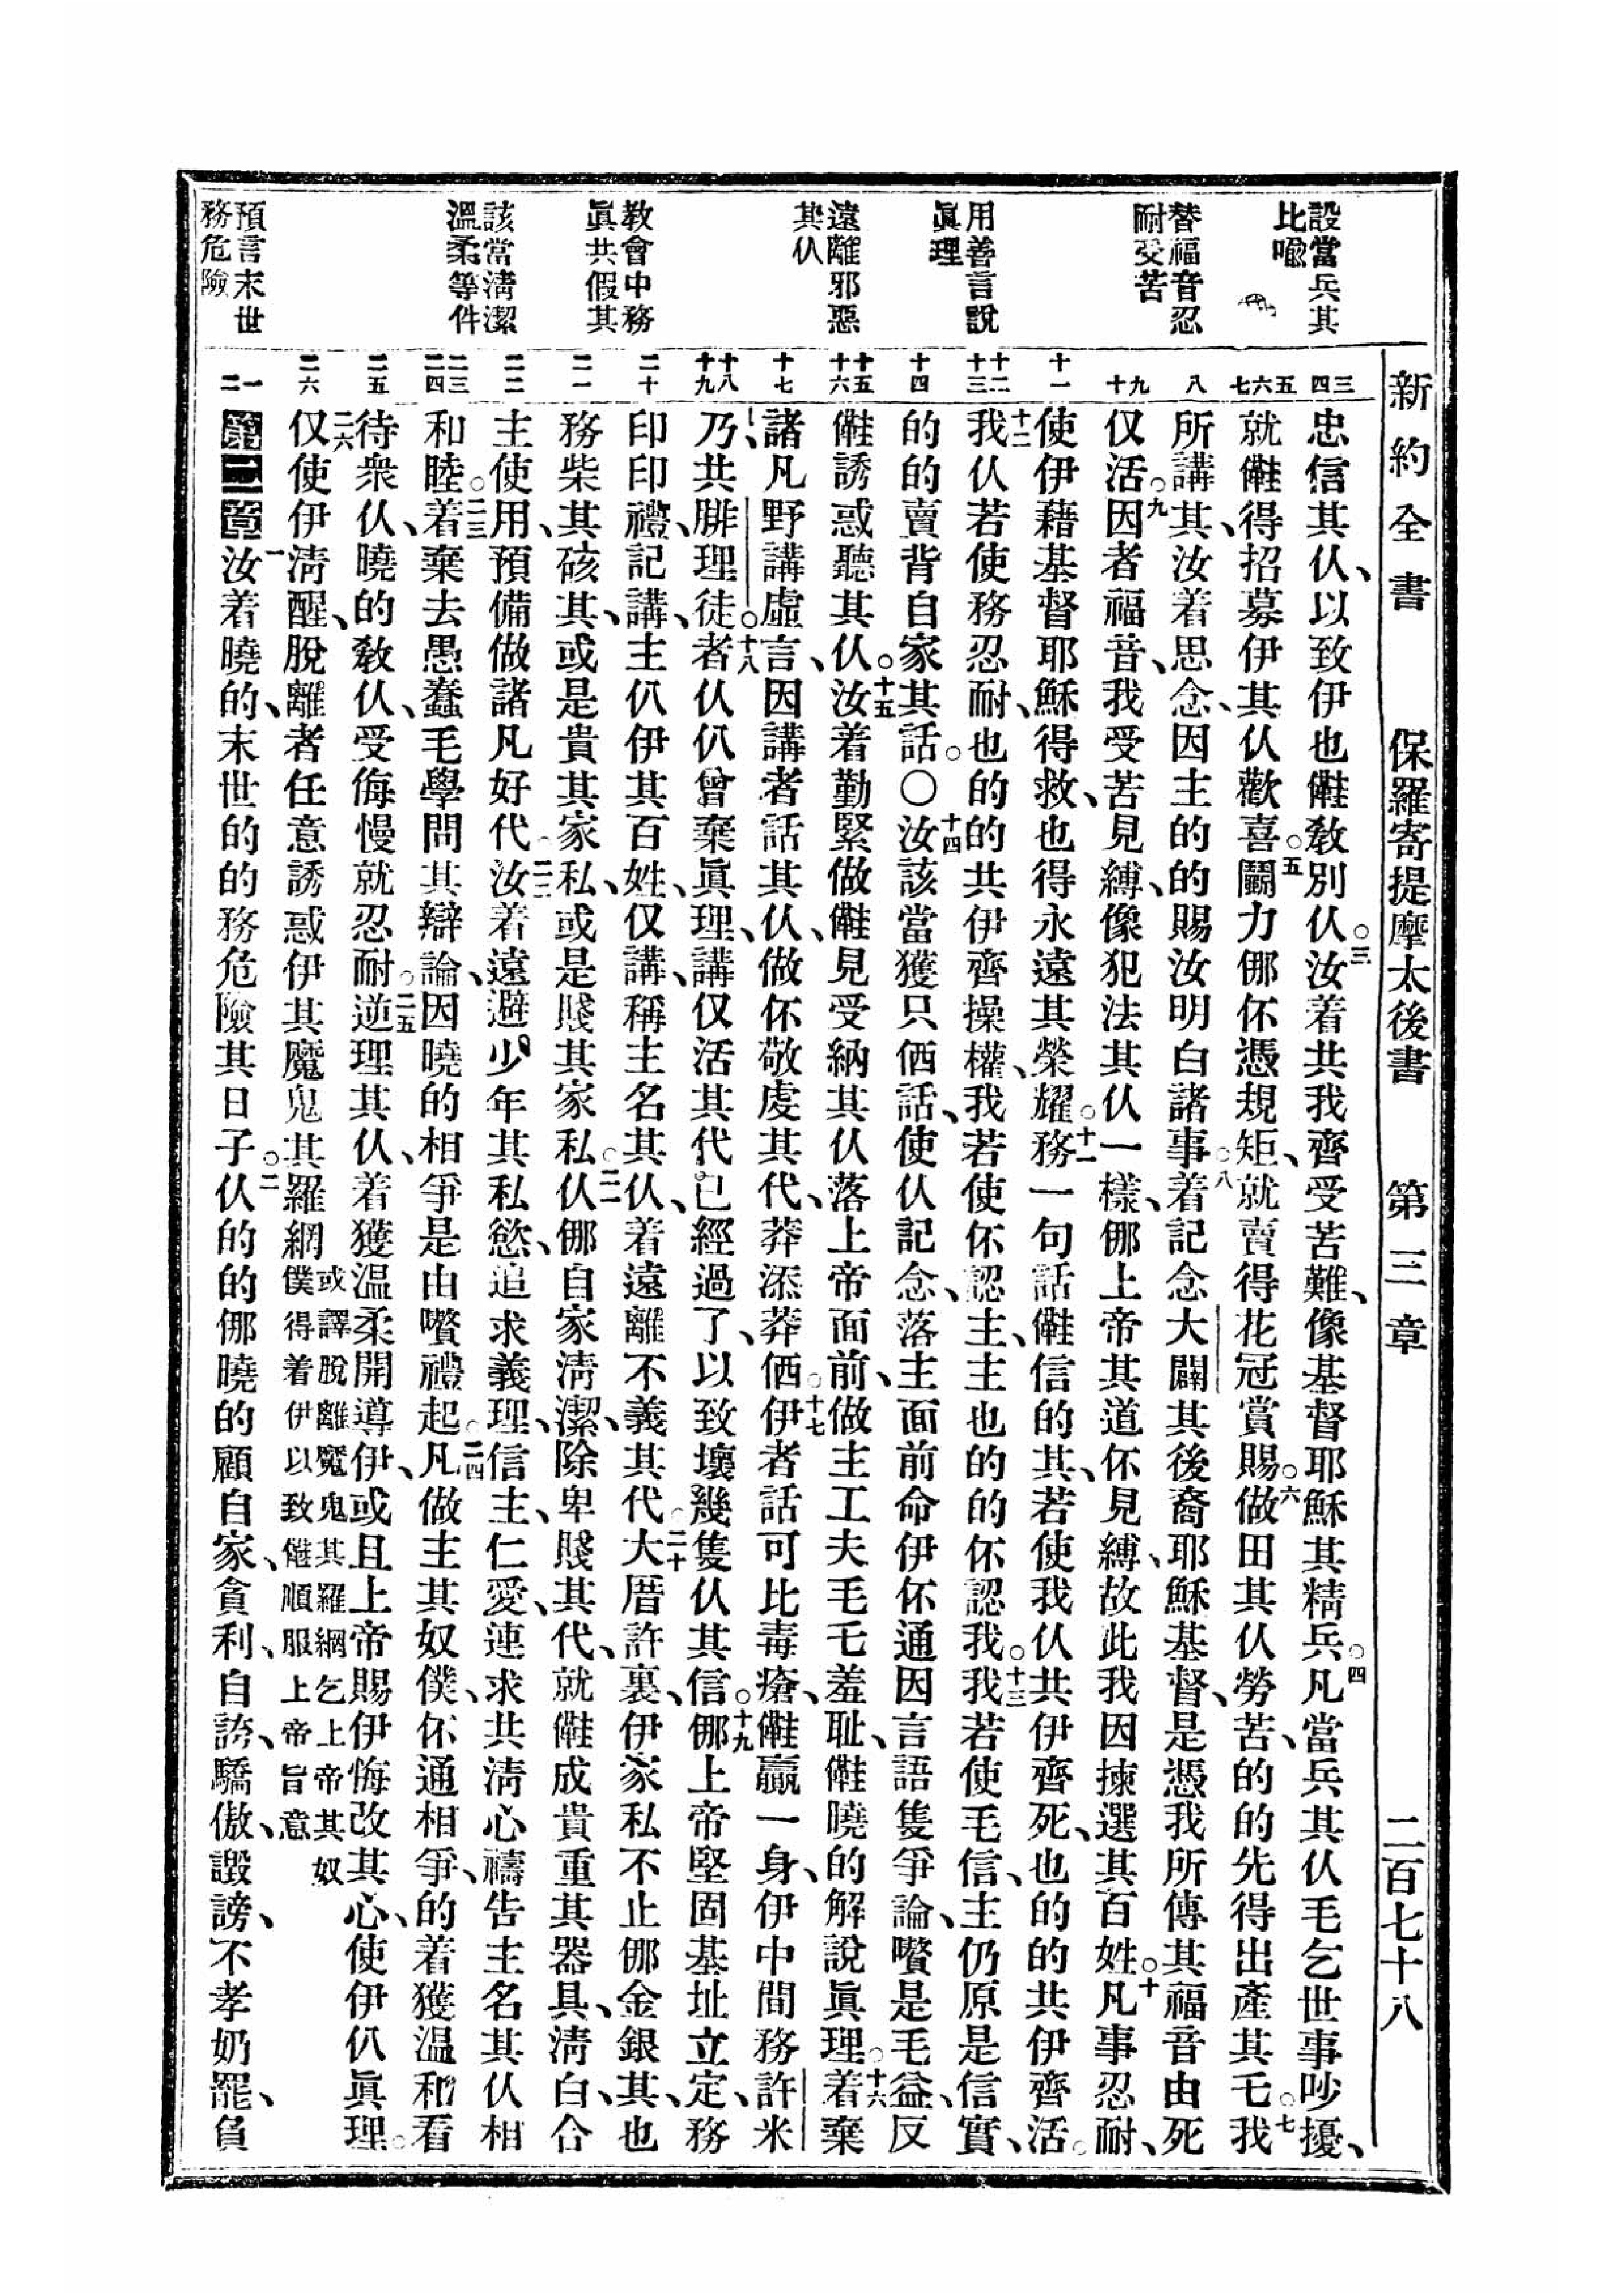 新約全書 保羅寄提摩太後書 第三章 二百七十八
設當兵其
比喩
替福音忍
耐受苦
用善言說
眞理
遠離邪惡
其仈
教會中務
眞共假其
該當淸潔
溫柔等件
預言末世
務危險
三 四
五 六 七
八
九 十
十一
十二 十三
十四
十五 十六
十七
十八 十九
二十
二一
二二
二三 二四
二五
二六
一 二
忠信其仈、以致伊也𠆧敎別仈。三汝着共我齊受苦難、像基督耶穌其精兵。四凡當兵其仈毛乞世事吵擾、
就𠆧得招募伊其仈歡喜。五鬭力㑚伓憑規矩、就賣得花冠賞賜。六做田其仈勞苦、的的先得出產其乇。七我
所講其、汝着思念、因主的的賜汝明白諸事。八着記念大闢其後裔耶穌基督、是憑我所傳其福音由死
仅活。九因者福音、我受苦見縛、像犯法其仈一樣、㑚上帝其道伓見縛、故此我因揀選其百姓、十凡事忍耐、
使伊藉基督耶穌得救、也得永遠其榮耀。十一務一句話𠆧信的其、若使我仈共伊齊死、也的的共伊齊活。
十二我仈若使務忍耐、也的的共伊齊操權、我若使伓認主、主也的的伓認我。十三我若使毛信、主仍原是信實、
的的賣背自家其話。○十四汝該當獲只㐵話、使仈記念、落主面前命伊伓通因言語隻爭論、嚽是毛益、反
𠆧誘惑聽其仈。十五汝着勤緊做𠆧見受納其仈落上帝面前、做主工夫毛乇羞耻、𠆧曉的解說眞理。十六着棄
諸凡野講虛言、因講者話其仈、做伓敬虔其代、莽添莽㐵。十七伊者話可比毒瘡、𠆧贏一身、伊中間務許米
乃共腓理徒。十八者仈仈曾棄眞理、講仅活其代已經過了、以致壞幾隻仈其信。十九㑚上帝堅固基址立定、務
印印禮、記講、主仈伊其百姓、仅講、稱主名其仈、着遠離不義其代。二十大厝許裏、伊家私不止㑚金銀其、也
務柴其硋其、或是貴其家私、或是賤其家私。二一仈㑚自家淸潔、除卑賤其代、就𠆧成貴重其器具、淸白、合
主使用、預備做諸凡好代。二二汝着遠避少年其私慾、追求義理、信主、仁愛、連求共淸心禱告主名其仈相
和睦。二三着棄去愚蠢毛學問其辯論、因曉的相爭是由嚽禮起。二四凡做主其奴僕、伓通相爭、的着獲溫和看
待衆仈、曉的敎仈、受侮慢就忍耐。二五逆理其仈、着獲溫柔開導伊、或且上帝賜伊悔改其心、使伊仈眞理。
二六仅使伊淸醒、脫離者任意誘惑伊其魔鬼其羅網 或譯脫離魔鬼其羅網乞上帝其奴僕得着伊以致𠆧順服上帝旨意
第三章 一汝着曉的、末世的的務危險其日子。二仈的的㑚曉的顧自家、貪利、自誇、驕傲、譭謗、不孝奶罷、負